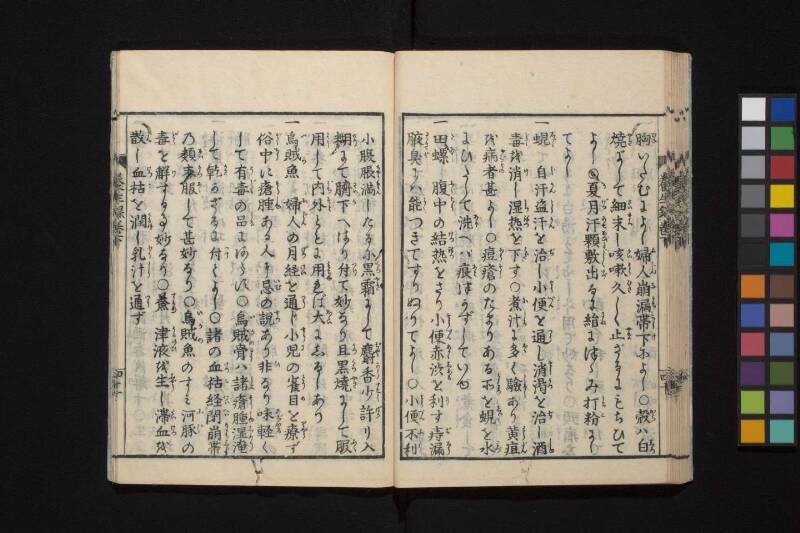 胸いたむによし婦人崩漏帯下によし○殻ハ白
焼にして細末し咳嗽久しく止ざるにもちひて
よし○夏月汗顆敷出るに絹につゝみ打粉にし
てよし
一蜆 自汗盗汗を治し小便を通し消渇を治し酒
毒を消し湿热を下す○煮汁は多く驗あり黄疸
を病者甚よし○痘瘡のたゞりあるに蜆を水
にひたして洗へバ痕はつかずしていゆ
一田螺 腹中の結热をさり小便赤渋を利す痔漏
腋臭にハ能つきてすりぬりてよし○小便不利
小腹脹満したるに黒霜にして麝香少許り入
糊にて臍下へはり付て妙なり且黒焼にして服
用して内外ともに用れば大にしるしあり
一烏賊魚 婦人の月経を通じ小児の雀目を療ず
俗中に瘡腫ある人に忌の説あり非なり味軽く
して有毒の品にはあらず○烏賊骨ハ諸瘡腫湿淹
して乾かざるに付てよし○諸の血枯経閉崩帯
乃類末服して甚妙なり○烏賊魚のすミ河豚の
毒を解する事妙なり○鰵 津液を生し滞血を
散し血枯を潤し乳汁を通ず